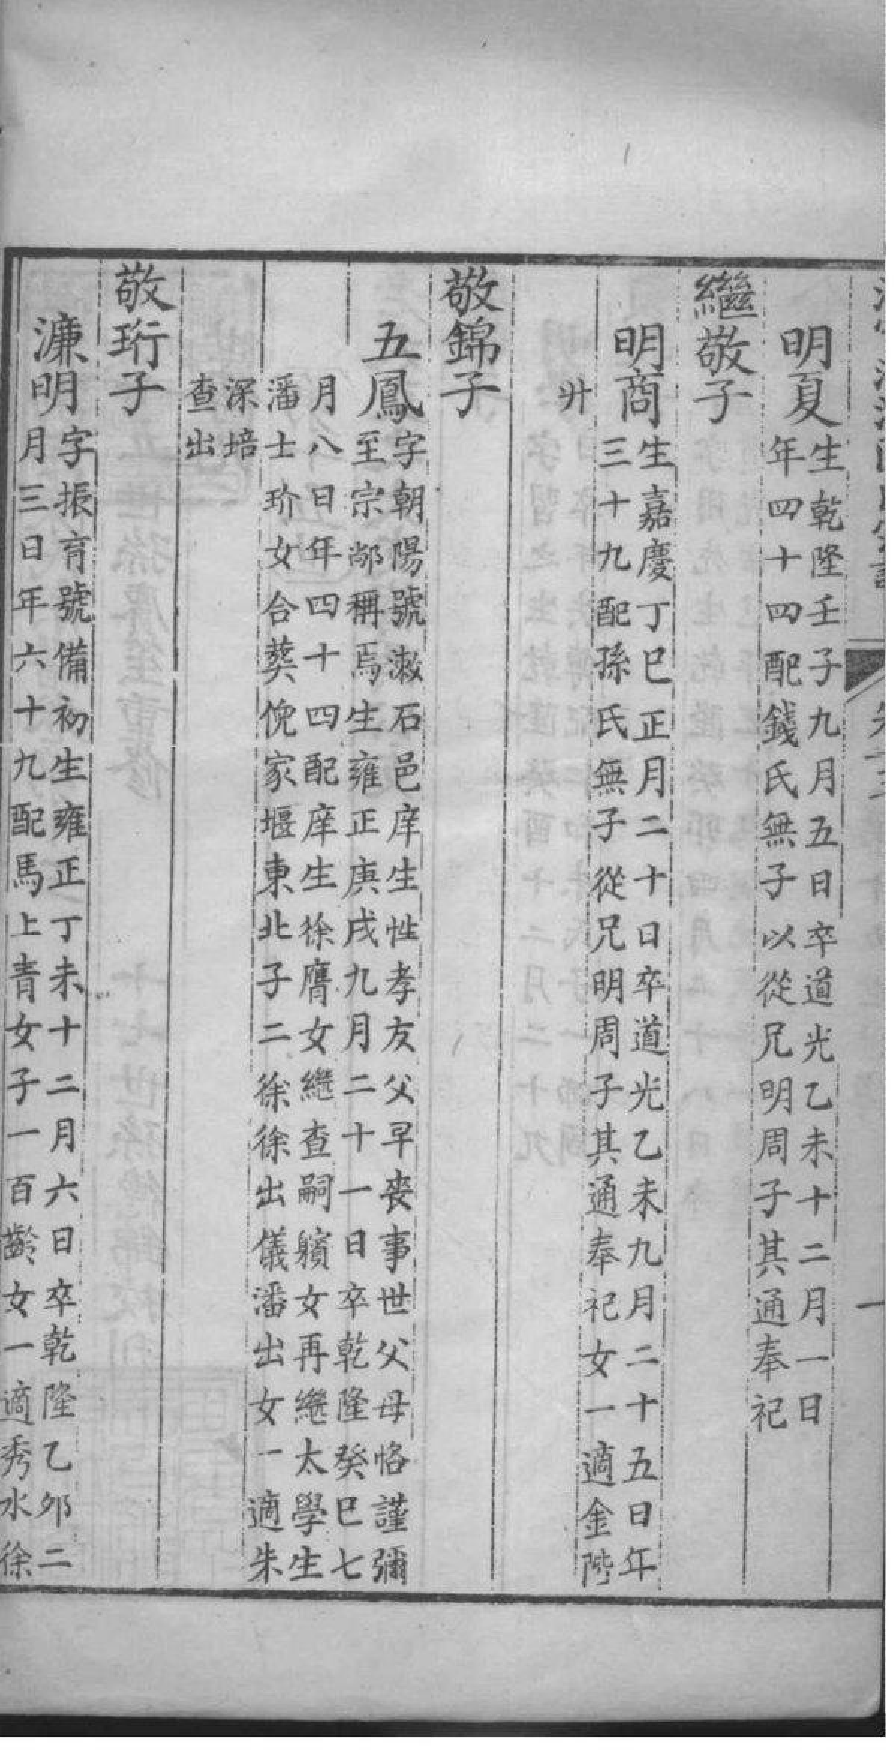 明夏
生乾隆壬子九月五日卒道光乙未十二月一日
年四十四配錢氏無子以從兄明周子其通奉祀
繼敬子
明商
生嘉慶丁巳正月二十日卒道光乙未九月二十五日年
三十九配孫氏無子從兄明周子其通奉祀女一適金陛
廾
敬錦子
五鳳
字朝陽號漱石邑庠生性孝友父早喪事世父母恪謹彌
至宗鄰稱焉生雍正庚戌九月二十一日卒乾隆癸巳七
月八日年四十四配庠生徐膺女繼查嗣鑌女再繼太學生
潘士玠女合葬倪家堰東北子二徐徐出儀潘出女一適朱
深培
查出
敬珩子
濂明
字振育號備初生雍正丁未十二月六日卒乾隆乙夘二
月三日年六十九配馬上青女子一百齡女一適秀水徐